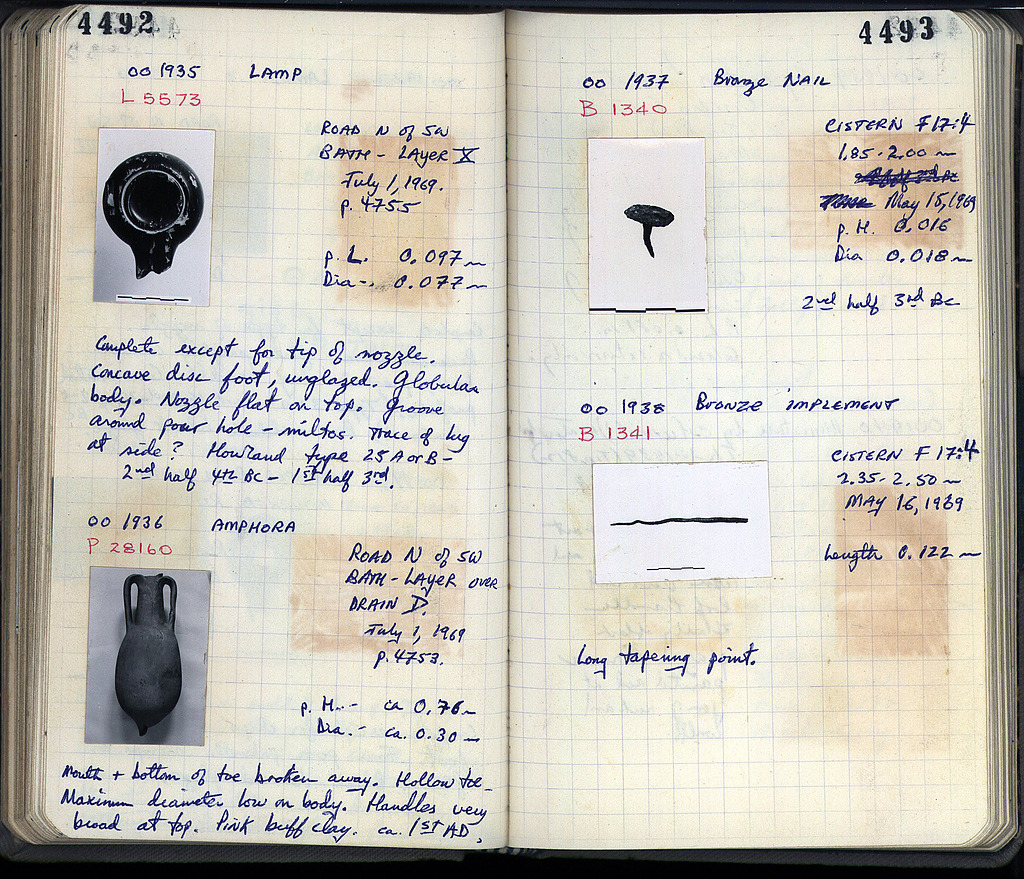 4492
OO 1935 LAMP
L 5573
ROAD N of SW
BATH - LAYER X
July 1, 1969.
p. 4755
p. L. 0.097 m
Dia -. 0.077 m
Complete except for tip of nozzle.
Concave disc foot, unglazed. Globular
body. Nozzle flat on top. Groove
around pour hole - miltos. Trace of lug
at side? Howland type 25 A or B -
2nd half 4th BC - 1st half 3rd.
OO 1936 AMPHORA
P 28160
ROAD N of SW
BATH - LAYER OVER
DRAIN D.
July 1, 1969
p. 4753.
p. H. - ca 0.76 m
Dia. - ca. 0.30 m
Mouth + bottom of toe broken away. Hollow toe -
Maximum diameter low on body. Handles very
broad at top. Pink buff clay. ca. 1st AD.
4493
OO 1937 Bronze NAIL
B 1340
CISTERN F 17:4
1.85 - 2.00 m
May 15, 1969
p. H. 0.016
Dia 0.018 m
2nd half 3rd BC
OO 1938 BRONZE IMPLEMENT
B 1341
CISTERN F 17:4
2.35 - 2.50 m
MAY 16, 1969
Length 0.122 m
Long tapering point.